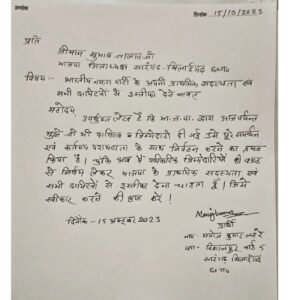 दिनांक 15/10/2023
प्रति
श्रीमान सुभाष जालान जी
भाजपा जिलाध्यक्ष सारंगढ़-बिलाईगढ़ छ०ग०
विषय:- भारतीय जनता पार्टी के अपनी प्राथमिक सदस्यता एवं
सभी दायित्वों से इस्तीफा देने बाबत्
महोदय
उपर्युक्त लेख है कि भा.ज.पा. द्वारा आज पर्यन्त
मुझे जो भी दायित्व व जिम्मेदारी दी गई उसे पूरे समर्पण
एवं कर्तव्य परायणता के साथ निर्वहन करने का प्रयास
किया है। चूंकि अब मैं पारिवारिक जिम्मेदारियों की वजह
से निर्णय लेकर भाजपा के प्राथमिक सदस्यता एवं
सभी दायित्वों से इस्तीफा देना चाहता हूं। जिसे
स्वीकार करने की कृपा करें!
दिनाँक - 15 अक्टूबर 2023
प्रार्थी
नाम- मनोज कुमार लहरे
पता-
सारंगढ़ बिलाईगढ़
छ०ग०